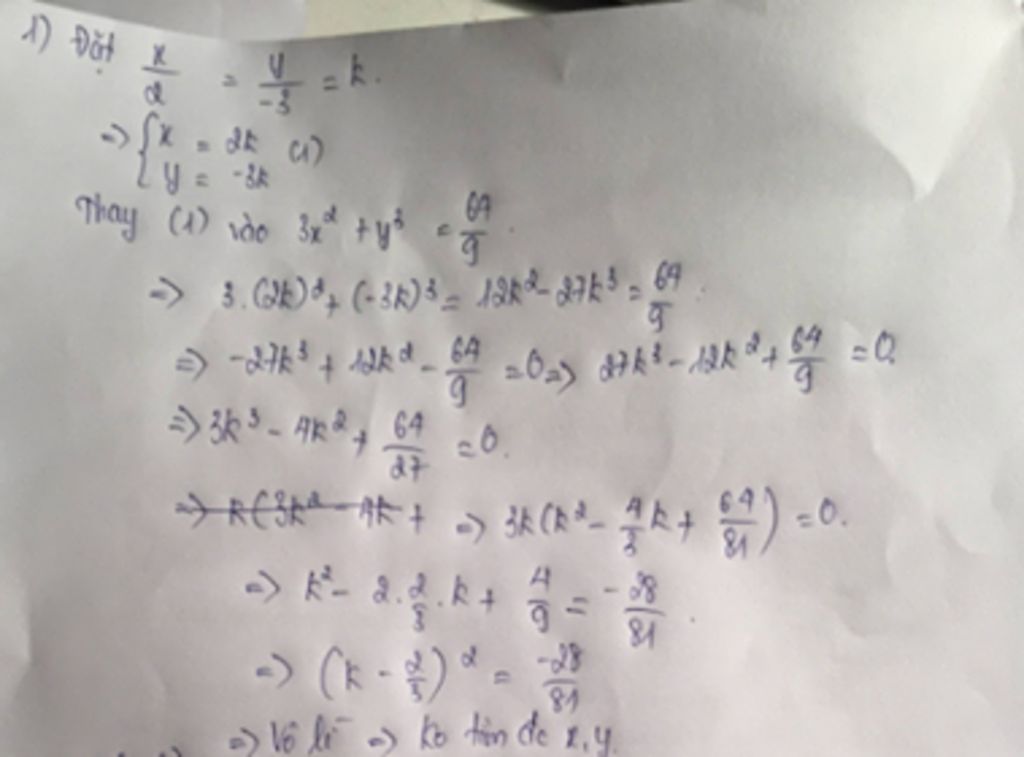 1) Đặt x/2 = y/-3 = k.
=> { x = 2k (1)
y = -3k
Thay (1) vào 3x² + y³ = 64/9.
=> 3.(2k)² + (-3k)³ = 12k² - 27k³ = 64/9.
=> -27k³ + 12k² - 64/9 = 0 => 27k³ - 12k² + 64/9 = 0.
=> 3k³ - 4k² + 64/27 = 0.
=> k(3k² - 4k + => 3k(k² - 4/3k + 64/81) = 0.
=> k² - 2.2/3.k + 4/9 = -28/81.
=> (k - 2/3)² = -28/81
=> Vô lí => ko tìm đc x, y.